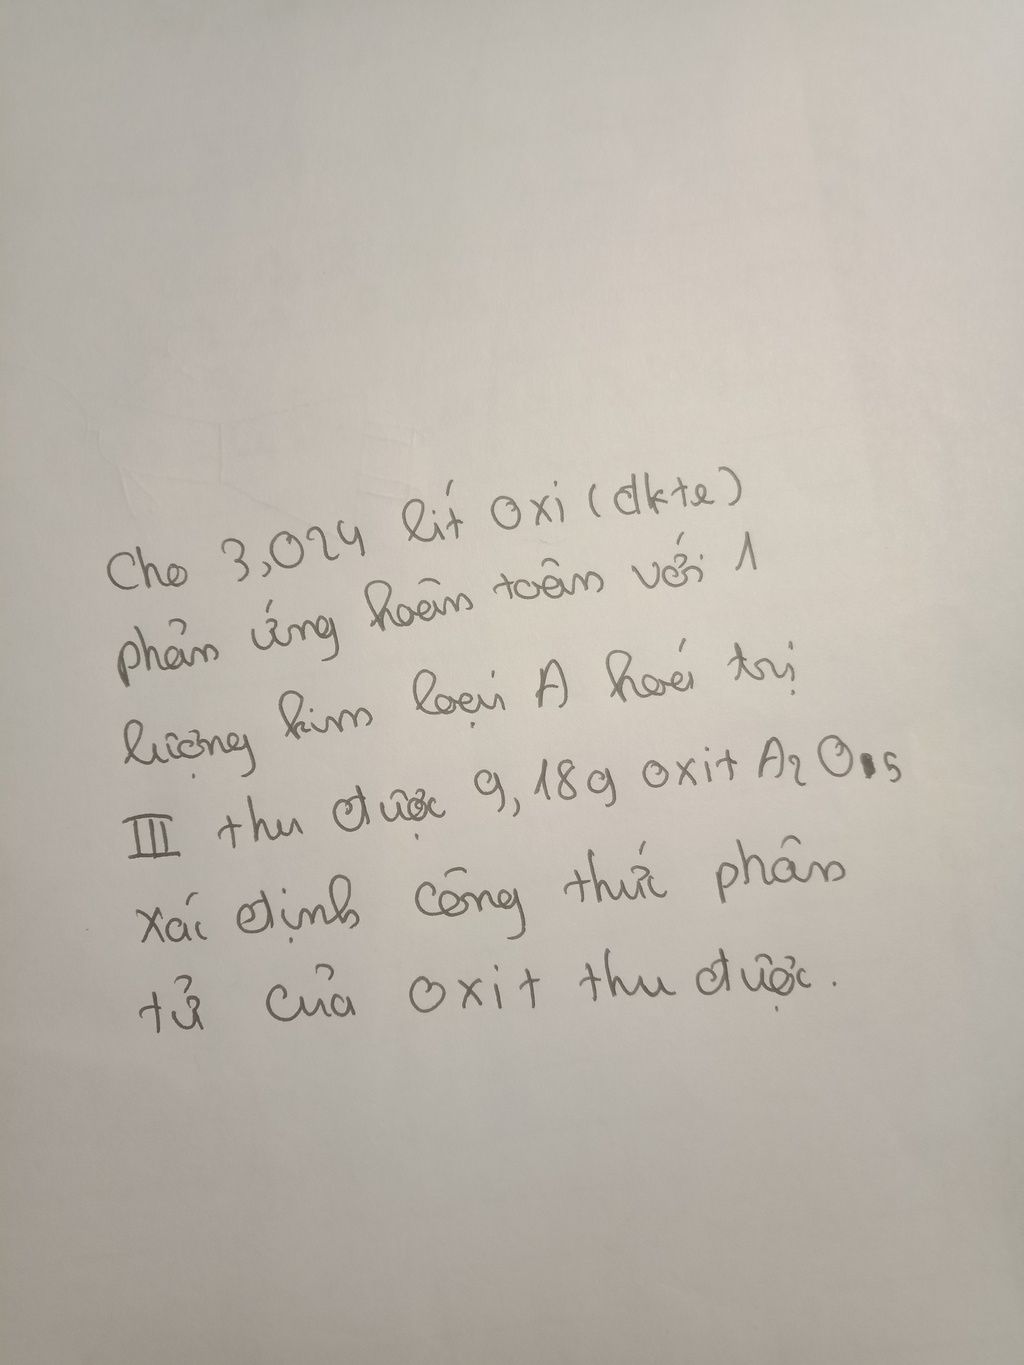 Cho 3,024 lít oxi (đktc)
phản ứng hoàn toàn với 1
lượng kim loại A hoá trị
III thu được 9,18g oxit A2O5
xác định công thức phân
tử của oxit thu được.